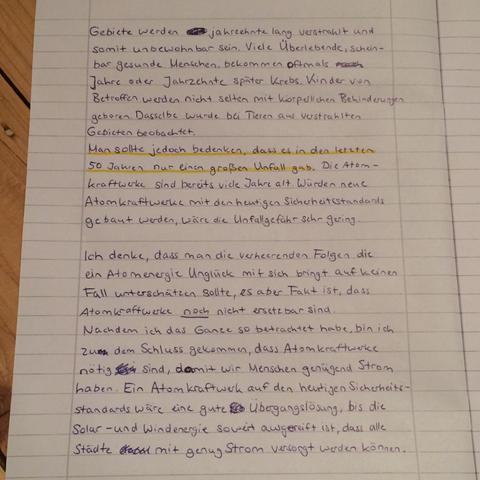 Gebiete werden jahrzehnte lang verstrahlt und
somit unbewohnbar sein. Viele Überlebende, schein-
bar gesunde Menschen, bekommen oftmals
Jahre oder Jahrzehnte später Krebs. Kinder von
Betroffen werden nicht selten mit körpellichen Behinderungen
geboren. Dasselbe wurde bei Tieren aus verstrahlten
Gebieten beobachtet.
Man sollte jedoch bedenken, dass es in den letzten
50 Jahren nur einen großen Unfall gab. Die Atom-
kraftwerke sind bereits viele Jahre alt. Würden neue
Atomkraftwerke mit den heutigen Sicherheitsstandards
gebaut werden, wäre die Unfallgefahr sehr gering.
Ich denke, dass man die verheerenden Folgen die
ein Atomenergie Unglück mit sich bringt auf keinen
Fall unterschätzen sollte, es aber Fakt ist, dass
Atomkraftwerke noch nicht ersetzbar sind.
Nachdem ich das Ganze so betrachtet habe, bin ich
zu dem Schluss gekommen, dass Atomkraftwerke
nötig sind, damit wir Menschen genügend Strom
haben. Ein Atomkraftwerk auf den heutigen Sicherheits-
standards wäre eine gute Übergangslösung, bis die
Solar- und Windenergie soweit ausgereift ist, dass alle
Städte mit genug Strom versorgt werden können.